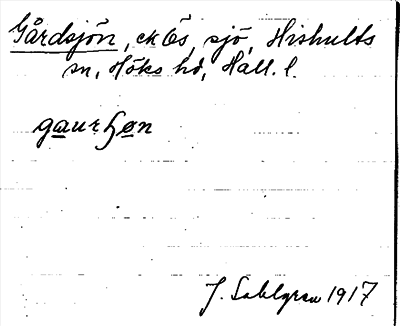 Gårdsjön, ek Ös, sjö, Hishults
sn, Höks hd, Hall. l.
gaurɧøn
J. Sahlgren 1917